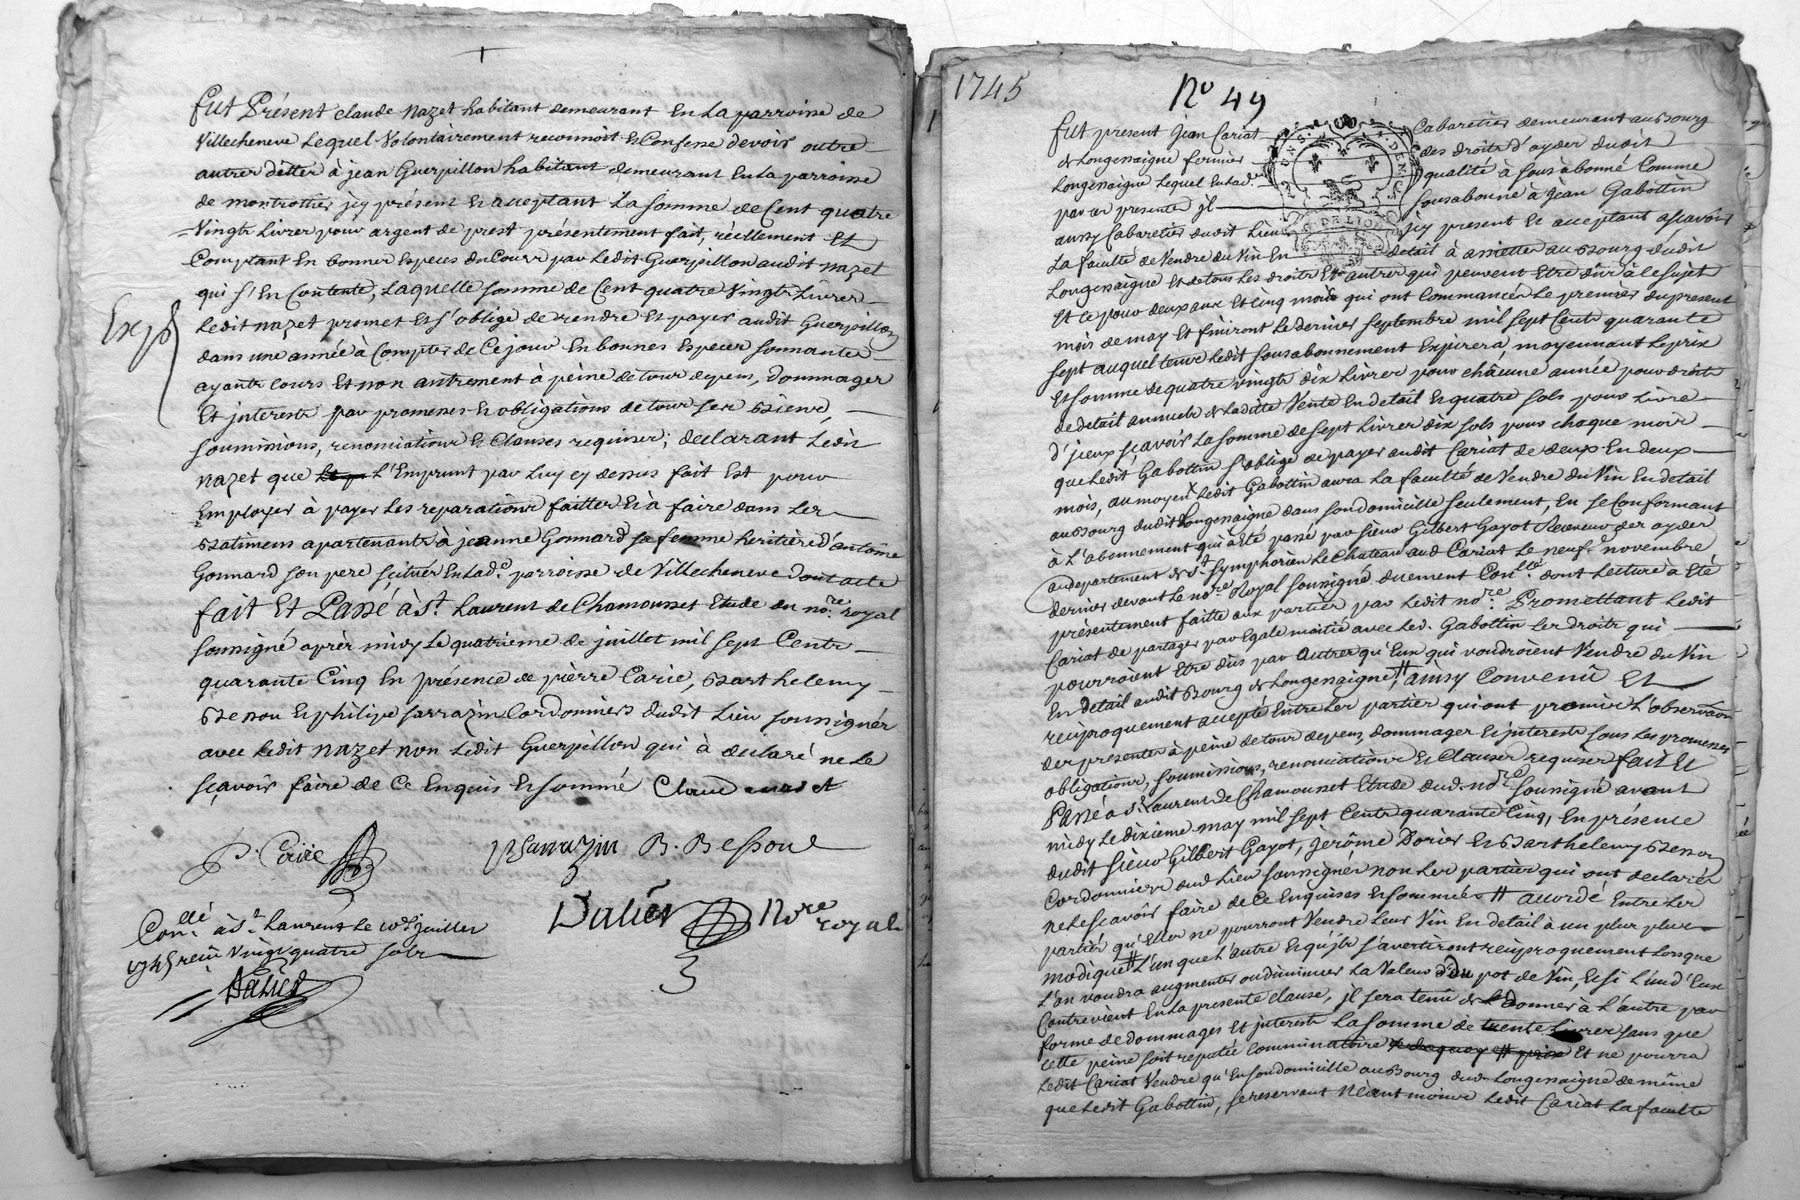 fut Présent claude nazet habitant demeurant En La parroisse de
Villecheneve Lequel Volontairement reconnoit & Confesse devoir outre
autres dettes à jean Guerpillon habitant demeurant En La parroisse
de montrottier jcy présent & acceptant La somme de Cent quatre
Vingts Livres pour argent de prest présentement fait, réellement Et
Comptant En bonnes Especes du Cours par Ledit Guerpillon audit nazet
qui s'En Contente, Laquelle somme de Cent quatre Vingts Livres
Exp
Ledit nazet promet Et s'oblige de rendre Et payer audit Guerpillon
dans une année à Compter de Ce jour En bonnes Especes sonnantes
ayants Cours Et non autrement à peine de tous depens, dommages
Et jnterests par promesses & obligations de tous ses Biens,
soumissions, renonciations & Clauses requises; declarant Ledit
nazet que L'Emprunt par Luy cy dessus fait Est pour
Employer à payer Les reparations faittes & à faire dans Les
Batimens apartenants à jeanne Gonnard sa femme heritiere d'antoine
Gonnard son pere, scitués En Lad.e parroisse de Villecheneve dont acte
fait Et Passé à St. Laurent de Chamousset Etude du no.re royal
soussigné après midy Le quatrieme de juillet mil sept Cents
quarante Cinq En présence de pierre Carié, Barthelemy
Besson & philipe sarrazin Cordonniers dudit Lieu soussignés
avec Ledit nazet non Ledit Guerpillon qui à déclaré ne Le
sçavoir faire de Ce Enquis & sommé Claude nazet
P. Cariée
P Sarrazin B. Besson
Dalier No.re royal
Con.llé à St. Laurent Le 10e juillet
1745 reçu Vingt quatre sols
Dalier
1745
No 49
fut present jean Cariat Cabaretier demeurant au Bourg
de Longessaigne fermier des droits d'aydes dudit
Longessaigne Lequel En Lad.e qualité à sous abonné Comme
par ces presentes jl sousabonne à jean Gabottin
aussy Cabaretier dudit Lieu jcy present Et acceptant asçavoir
La faculté de Vendre du Vin En detail à assiette au Bourg dudit
Longessaigne Et de tous Les droits Et autres qui peuvent Etre dûs à Ce sujet
Et Ce pour deux ans Et Cinq mois qui ont Commancés Le premier du present
mois de may Et finiront Le dernier septembre mil sept Cents quarante
sept auquel tems Ledit sousabonnement Expirera, moyennant Le prix
Et somme de quatre vingts dix Livres pour chacune année pour droits
de detail annuels de Laditte Vente En detail & quatre sols pour Livre
d'jceux sçavoir La somme de sept Livres dix sols pour chaque mois
que Ledit Gabottin s'oblige de payer audit Cariat de deux En deux
mois, au moyen Ledit Gabottin aura La faculté de Vendre du Vin En detail
au Bourg dudit Longessaigne dans son domicille seulement, En se Conformant
à L'abonnement qui à Eté passé par sieur Gilbert Gayot Receveur des aydes
au departement de St. Symphorien Le Chateau aud. Cariat Le neuf.e novembre
dernier devant Le no.re Royal soussigné duement Con.llé dont Lecture à Eté
présentement faitte aux parties, par Ledit no.re. Promettant Ledit
Cariat de partager par Egale moitié avec Led. Gabottin Les droits qui
pourroient Etre dûs par Autres qu'Eux qui voudroient Vendre du Vin
En detail audit Bourg de Longessaigne # ainsy Convenû Et
reciproquement accepté Entre Les parties qui ont promis L'observation
des presentes à peine de tous depens, dommages & jnterests sous Les promesses
obligations, soumissions, renonciations Et Clauses requises fait Et
Passé à St. Laurent de Chamousset Etude dud. no.re soussigné avant
midy Le dixieme may mil sept Cents quarante Cinq, En présence
dudit sieur Gilbert Gayot, jerôme Dorier & Barthelemy Besson
Cordonniers dud. Lieu soussignés non Les parties qui ont declarés
ne Le sçavoir faire de Ce Enquises & sommées # accordé Entre Les
parties qu'Elles ne pourront Vendre Leur Vin En detail à un plus
modique # L'un que L'autre & qu'jls s'avertiront reciproquement Lorsque
L'on voudra augmenter ou diminuer La Valeur du pot de Vin, Et si L'un d'Eux
Contrevient En La presente Clause, jl sera tenû de donner à L'autre par
forme de dommages Et jnterests La somme de trente Livres sans que
Cette peine soit reputée Comminatoire Et ne pourra
Ledit Cariat Vendre qu'En son domicille au Bourg dud. Longessaigne de même
que Ledit Gabottin, se reservant Néant moins Ledit Cariat La faculté